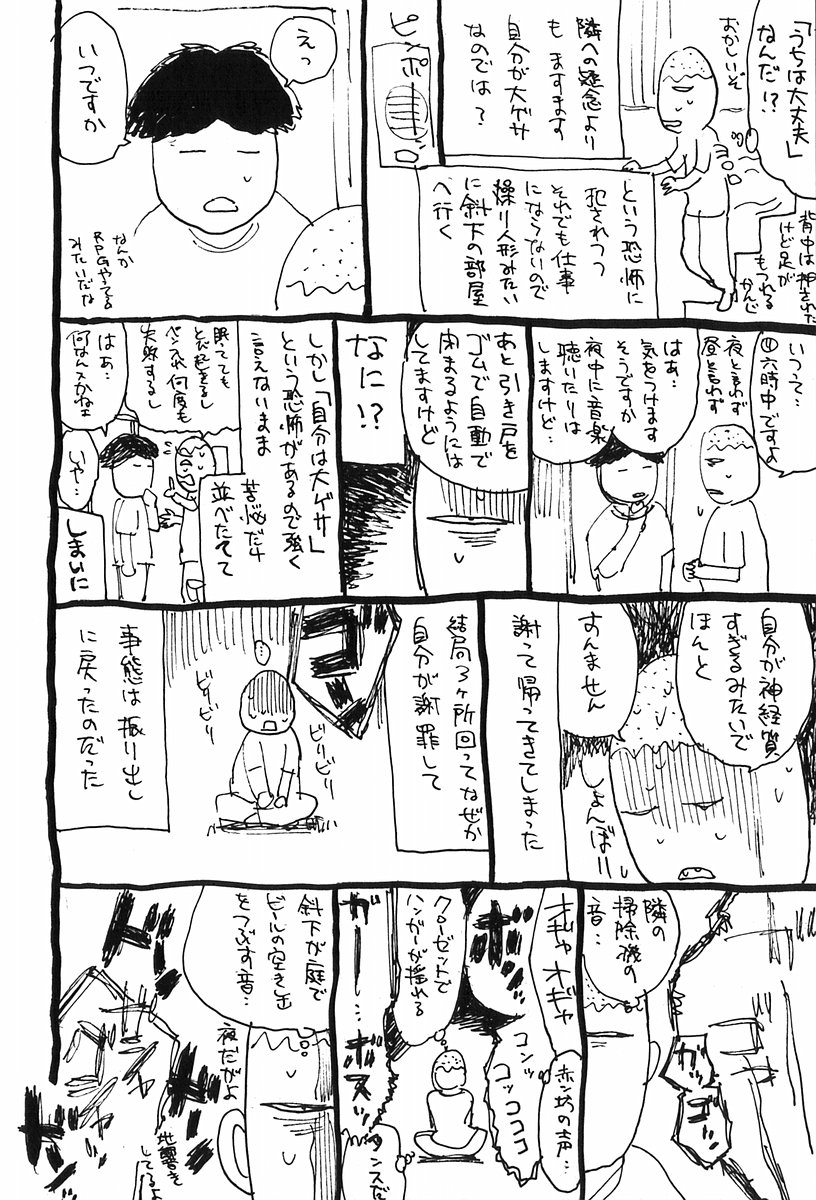 「うちは大丈夫」
なんだ!?
おかしいぞ
背中は押された
けど足が
もつれる
かんじ
隣への疑念より
も ますます
自分が大ゲサ
なのでは?
という恐怖に
犯されつつ
それでも仕事
にならないので
操り人形みたい
に斜下の部屋
へ行く
ピンポーン
えっ
いつですか
なんか
RPGやってる
みたいだな
いつって…
四六時中ですよ
夜と言わず
昼と言わず
はぁ…
気をつけます
そうですか
夜中に音楽
聴いたりは
しますけど…
あと引き戸を
ゴムで自動で
閉まるようには
してますけど
なに!?
しかし「自分は大ゲサ」
という恐怖があるので強く
言えないまま
苦悩だけ
並べたてて
眠てても
とび起きるし
ペン入れ何度も
失敗するし
はぁ…
何なんスかねェ
いや…
しまいに
自分が神経質
すぎるみたいで
ほんと
すんません
しょんぼり
謝って帰ってきてしまった
結局3ヶ所回ってなぜか
自分が謝罪して
ゴン
…
ビリビリ
ビリビリ
事態は振り出し
に戻ったのだった
ガッ
ゴッ
隣の
掃除機の
音…
オギャオギャ
赤ン坊の声…
コンッ
コッココココ
クローゼットで
ハンガーが揺れる
ガー…
ギスッ
タンスだ
斜下が庭で
ビールの空き缶
をつぶす音…
夜だがよ
ドド
ドド
地響き
してるよ